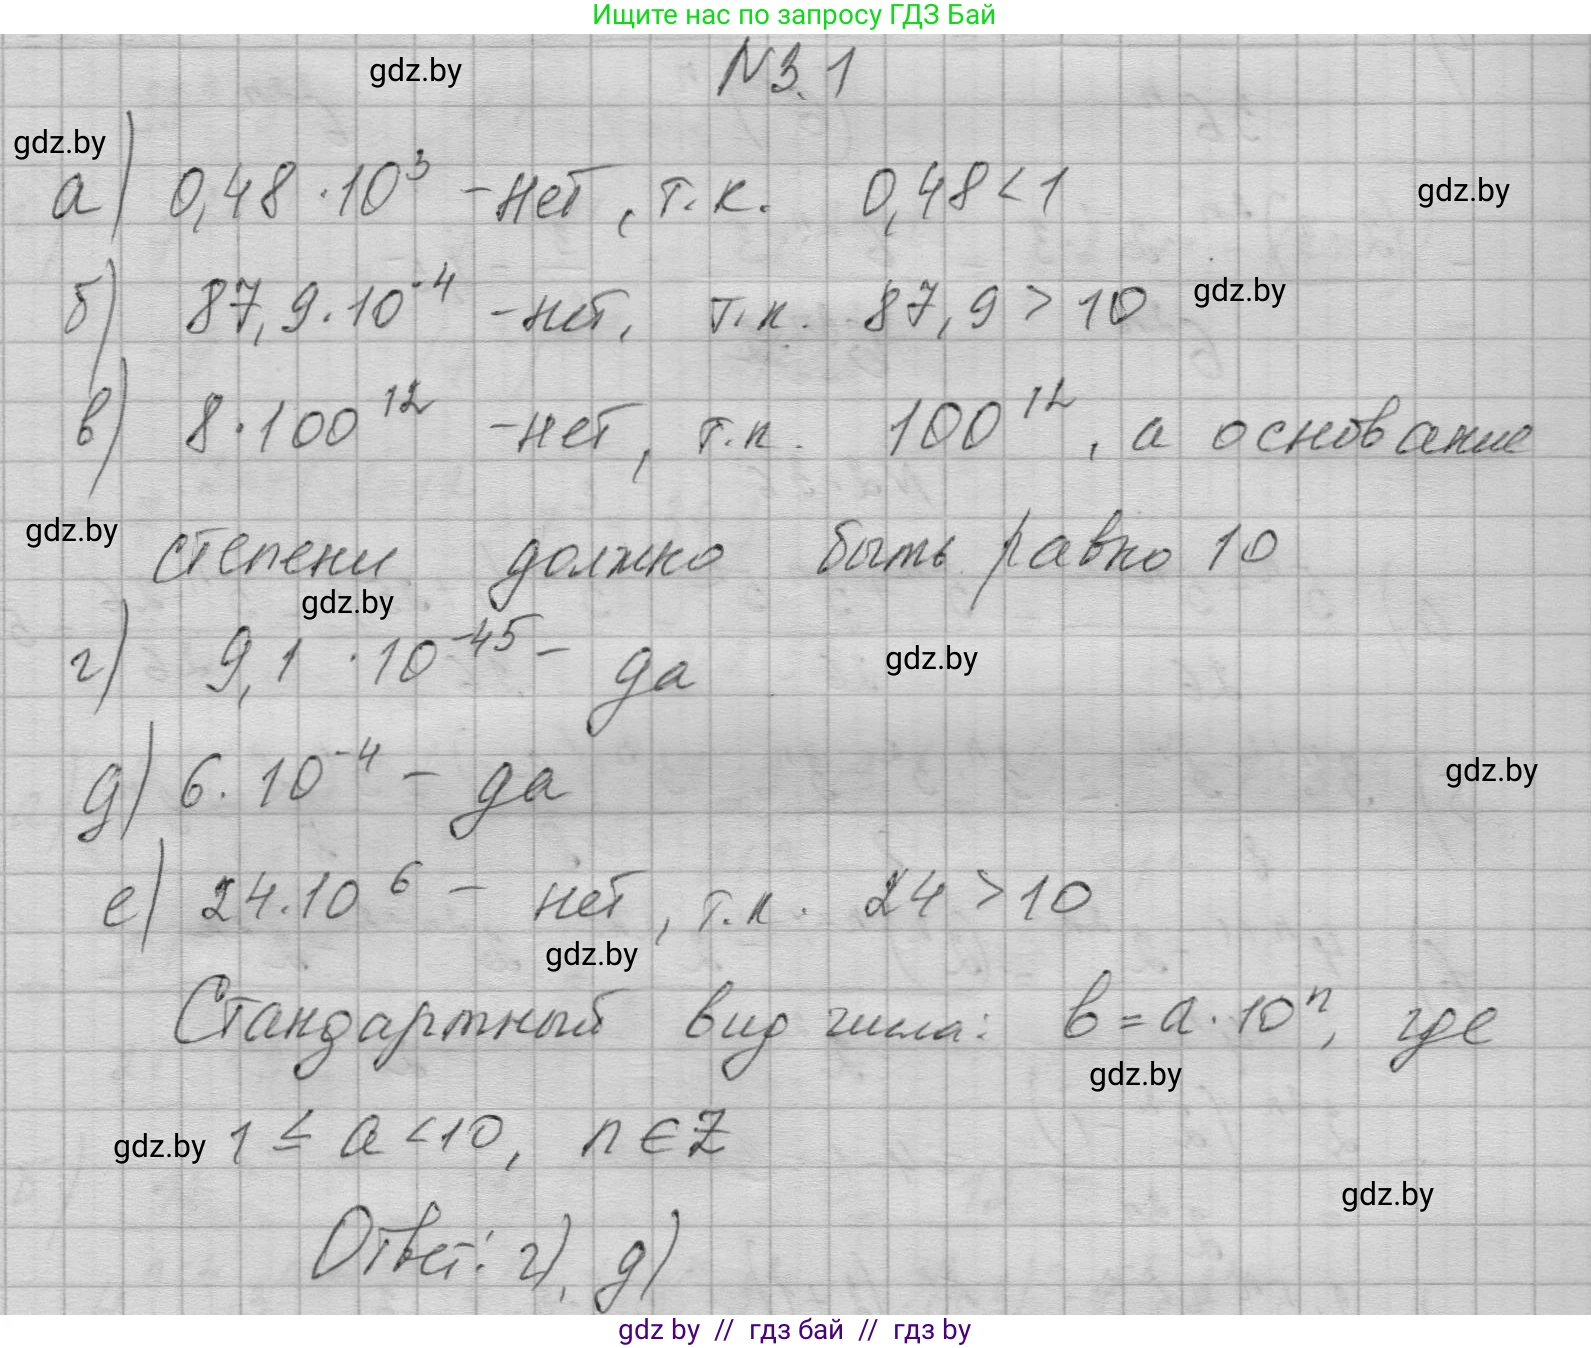 Ищите нас по запросу ГДЗ Бай
gdz.by
N3.1
gdz.by
а) 0,48 · 10³ - нет, т.к. 0,48 < 1
gdz.by
б) 87,9 · 10⁻⁴ - нет, т.к. 87,9 > 10
gdz.by
в) 8 · 100¹² - нет, т.к. 100¹², а основание
gdz.by
степени должно быть равно 10
gdz.by
г) 9,1 · 10⁻⁴⁵ - да
gdz.by
д) 6 · 10⁻⁴ - да
gdz.by
е) 24 · 10⁶ - нет, т.к. 24 > 10
gdz.by
Стандартный вид числа: b = a · 10ⁿ, где
gdz.by
gdz.by
1 ≤ a < 10, n ∈ Z
gdz.by
Ответ: г), д)
gdz by // гдз бай // гдз by